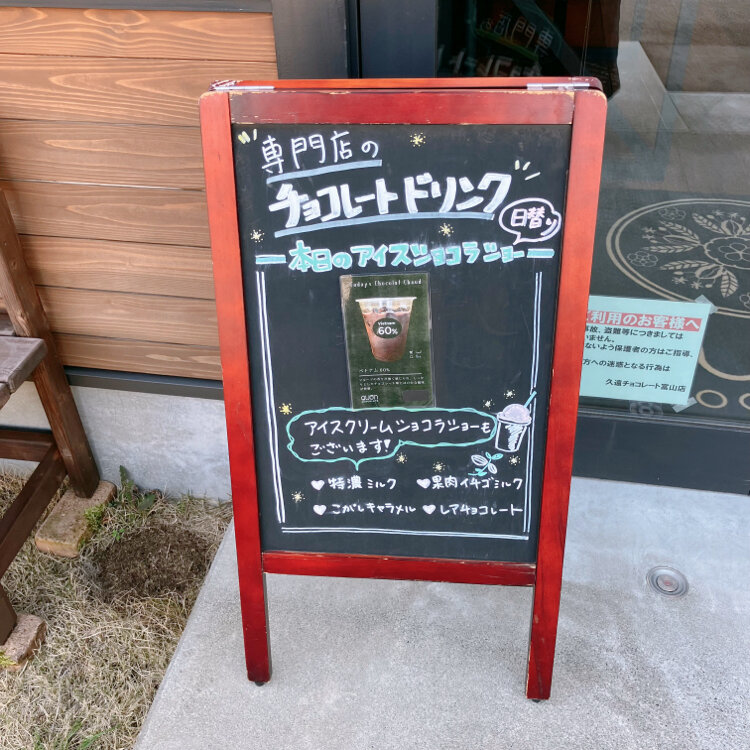 専門店の
チョコレートドリンク
日替り
本日のアイスショコラショー
Today's Chocolat Chaud
Vietnam
60%
ベトナム 60%
quon
アイスクリームショコラショーも
ございます!
特濃ミルク
果肉イチゴミルク
こがしキャラメル
レアチョコレート
専門店の
利用のお客様へ
事故、盗難等につきましては
いません。
ないよう保護者の方はご指導、
方への迷惑となる行為は
久遠チョコレート富山店